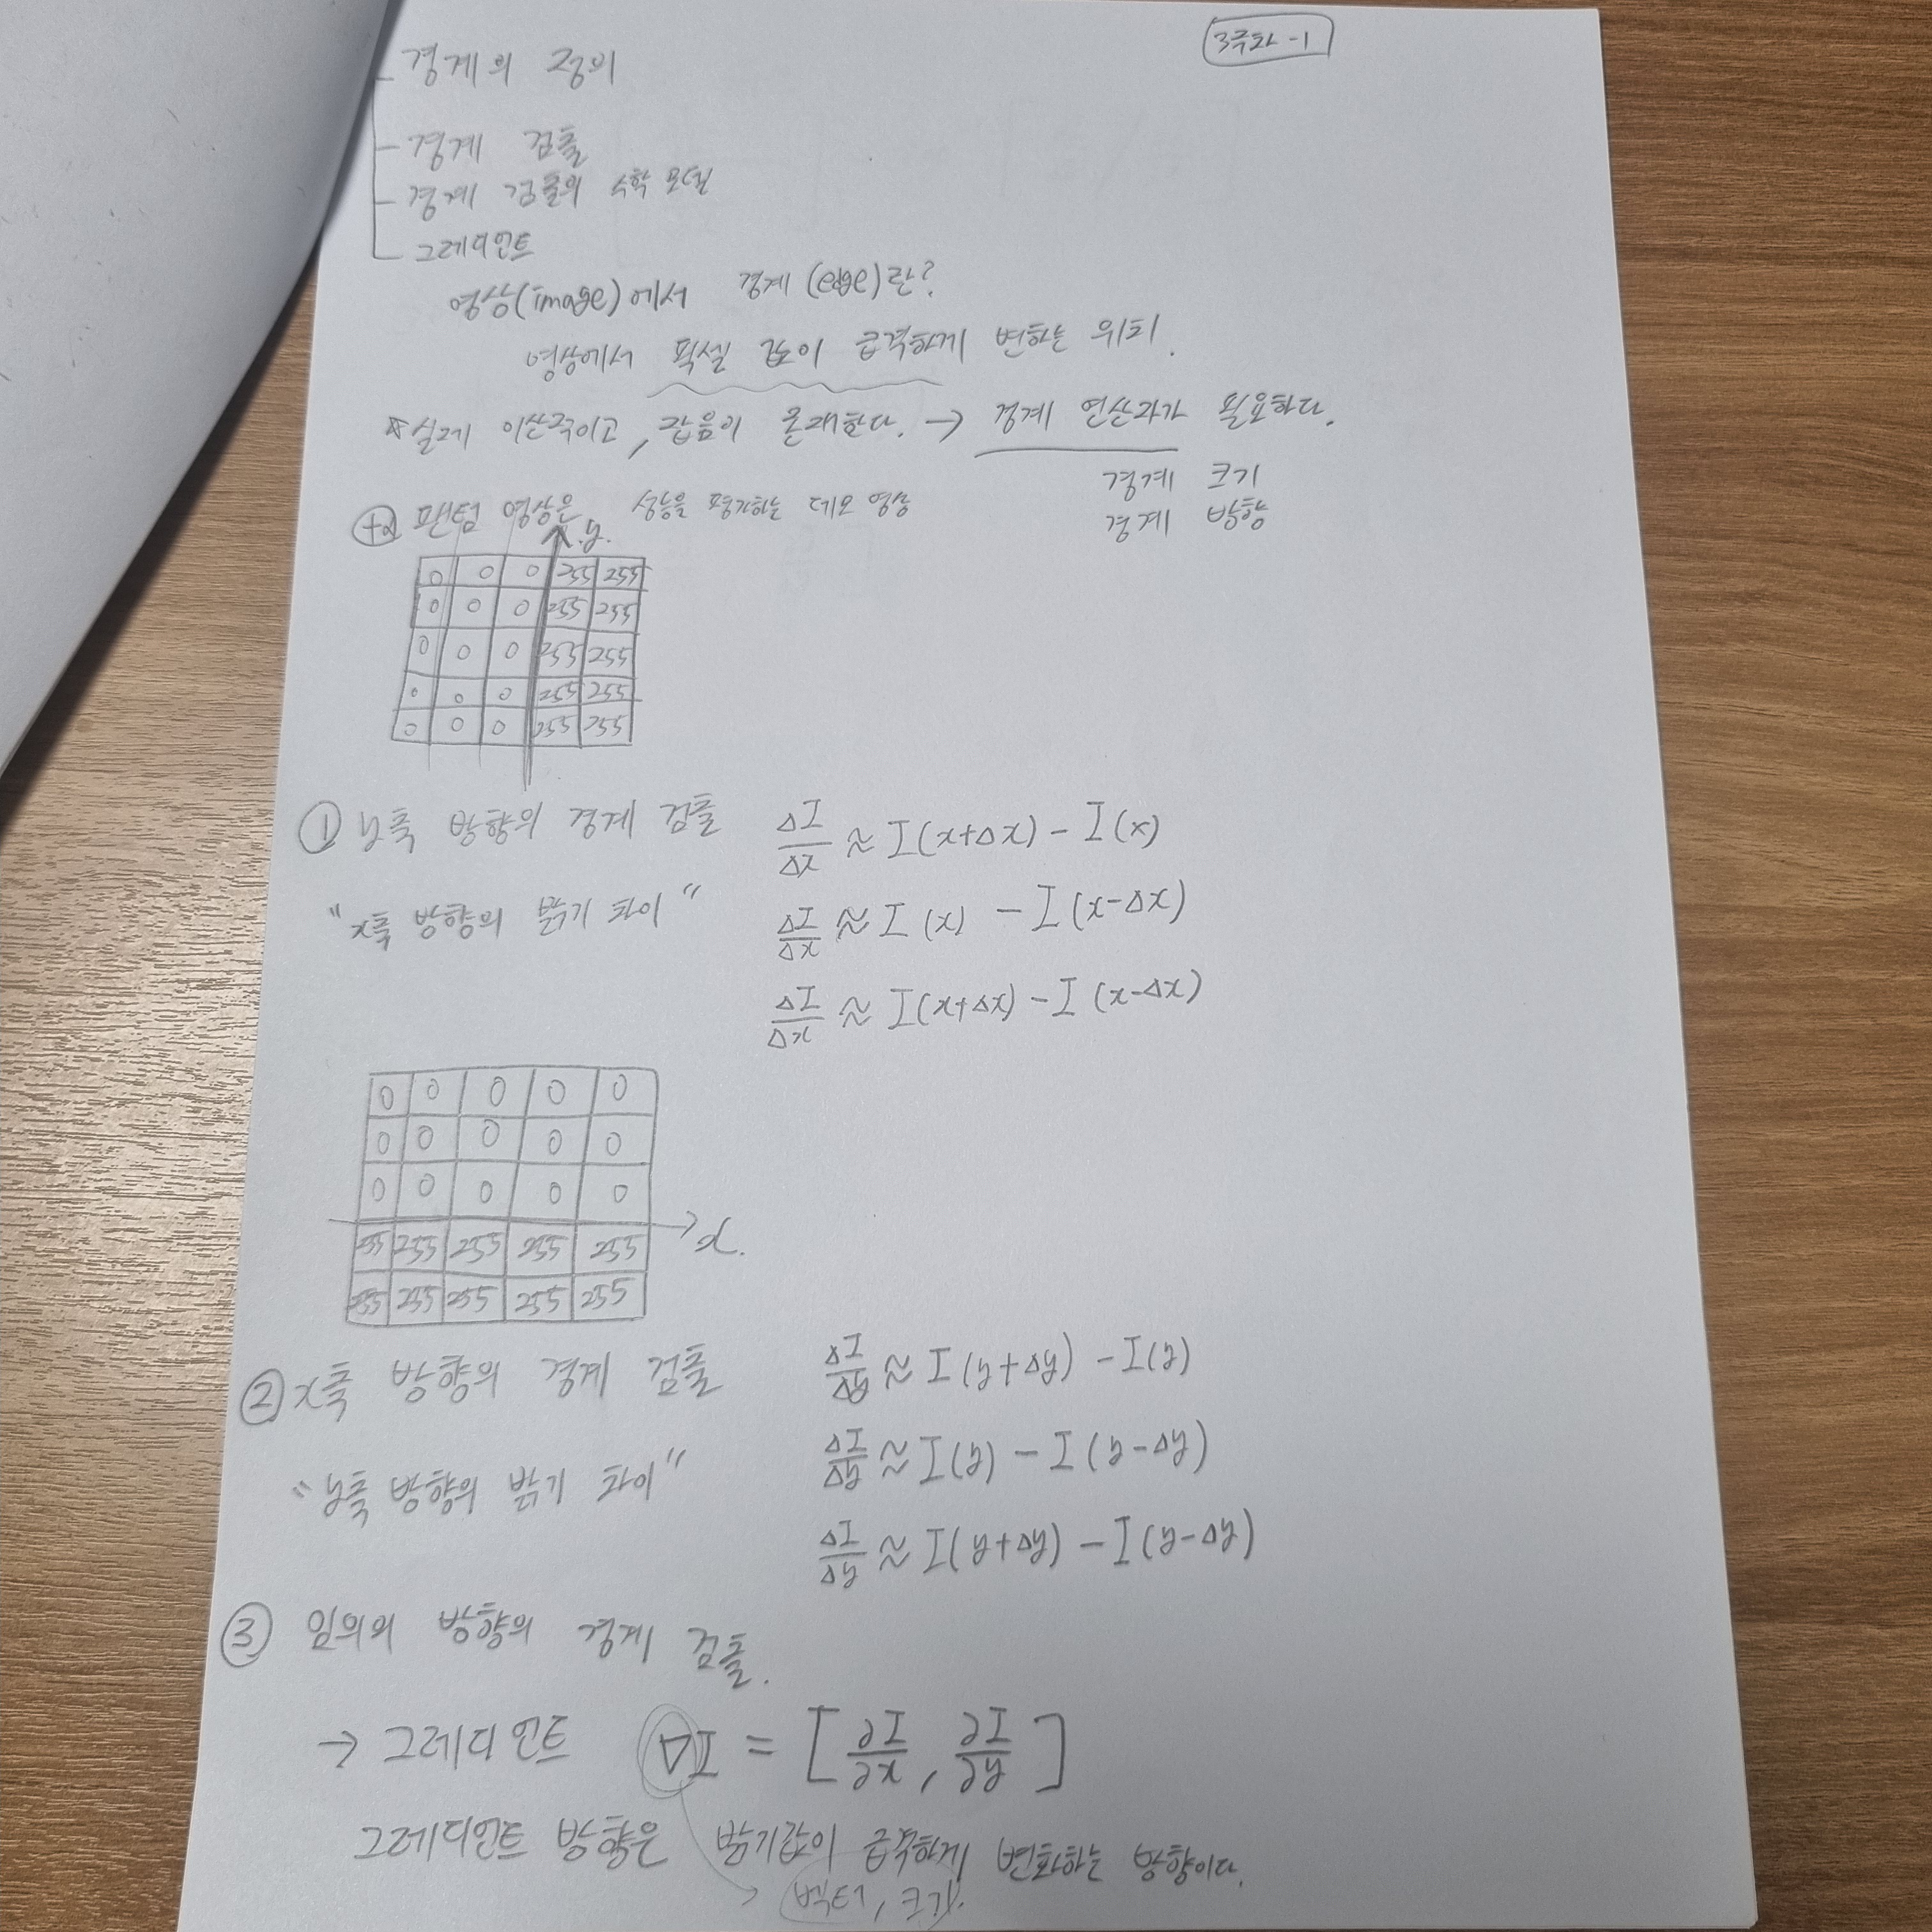 3주차-1
경계의 정의
경계 검출
경계 검출의 수학 모델
그레디언트
영상(image)에서 경계(edge)란?
영상에서 픽셀 값이 급격하게 변하는 위치.
☆ 실제 이산적이고, 잡음이 존재한다. → 경계 연산자가 필요하다.
경계 크기
경계 방향
+α 팬텀 영상은 성능을 평가하는 데모 영상
y.
0 0 0 255 255
0 0 0 255 255
0 0 0 255 255
0 0 0 255 255
0 0 0 255 255
① y축 방향의 경계 검출
"x축 방향의 밝기 차이"
ΔI/Δx ≈ I(x+Δx) - I(x)
ΔI/Δx ≈ I(x) - I(x-Δx)
ΔI/Δx ≈ I(x+Δx) - I(x-Δx)
0 0 0 0 0
0 0 0 0 0
0 0 0 0 0
x.
255 255 255 255 255
255 255 255 255 255
② x축 방향의 경계 검출
"y축 방향의 밝기 차이"
ΔI/Δy ≈ I(y+Δy) - I(y)
ΔI/Δy ≈ I(y) - I(y-Δy)
ΔI/Δy ≈ I(y+Δy) - I(y-Δy)
③ 임의의 방향의 경계 검출.
→ 그레디언트 ∇I = [∂I/∂x, ∂I/∂y]
그레디언트 방향은 밝기값이 급속하게 변화하는 방향이다.
벡터, 크기.